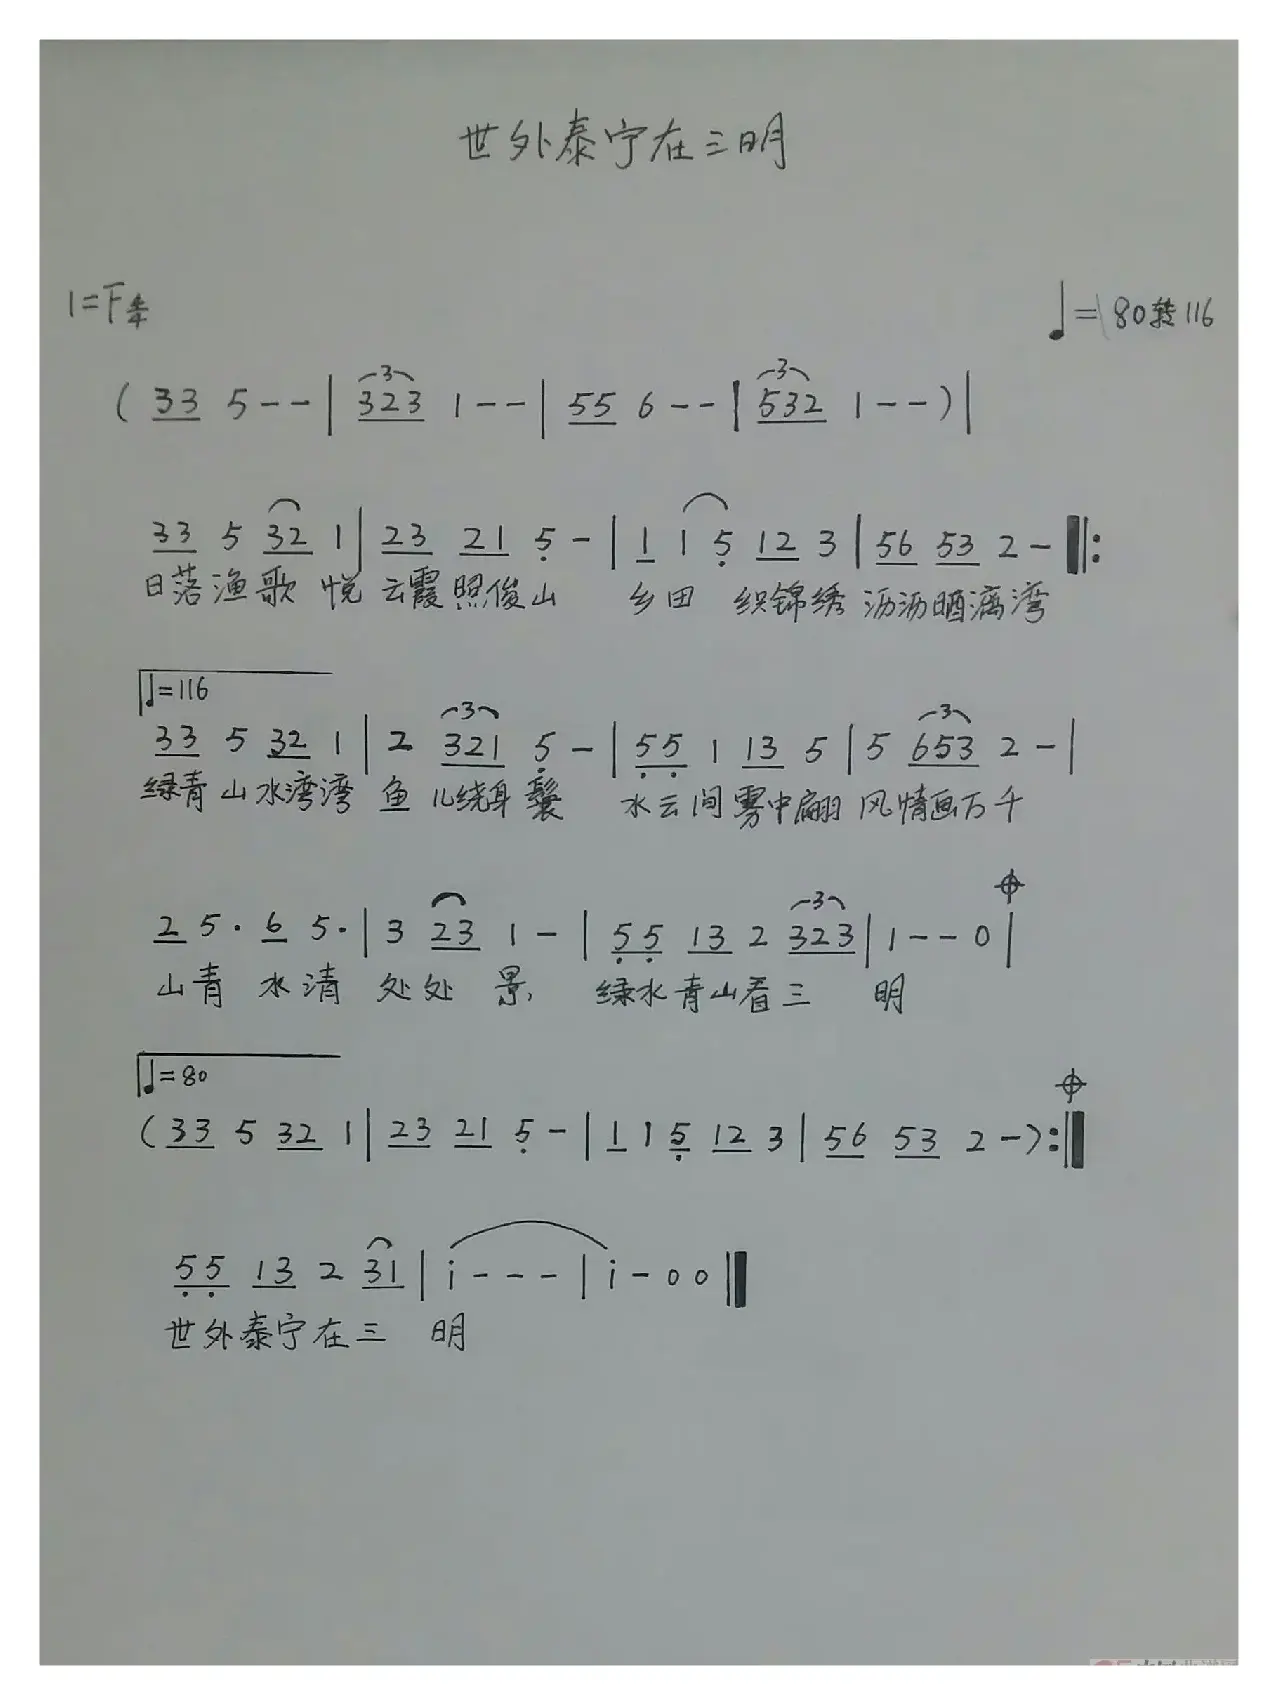 世外泰宁在三明
1=F 4/4
♩=80转116
( 33 5 - - | 323 1 - - | 55 6 - - | 532 1 - - ) |
33 5 32 1 | 23 21 5 - | 1 1 5 12 3 | 56 53 2 - ‖:
日落渔歌 悦 云霞照俊山 乡田 织锦绣 沥沥晒漓湾
♩=116
33 5 32 1 | 2 321 5 - | 55 1 13 5 | 5 653 2 - |
绿青山水湾湾 鱼儿绕身鬟 水云间雾中翩 风情画万千
2 5· 6 5· | 3 23 1 - | 55 13 2 323 | 1 - - 0 |
山青 水清 处处 景, 绿水青山看三 明
♩=80
( 33 5 32 1 | 23 21 5 - | 1 1 5 12 3 | 56 53 2 - ) :‖
55 13 2 31 | i - - - | i - 0 0 ‖
世外泰宁在三 明